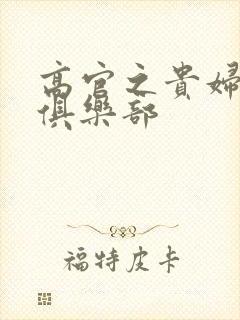 高官之貴婦
俱樂部
福特皮卡